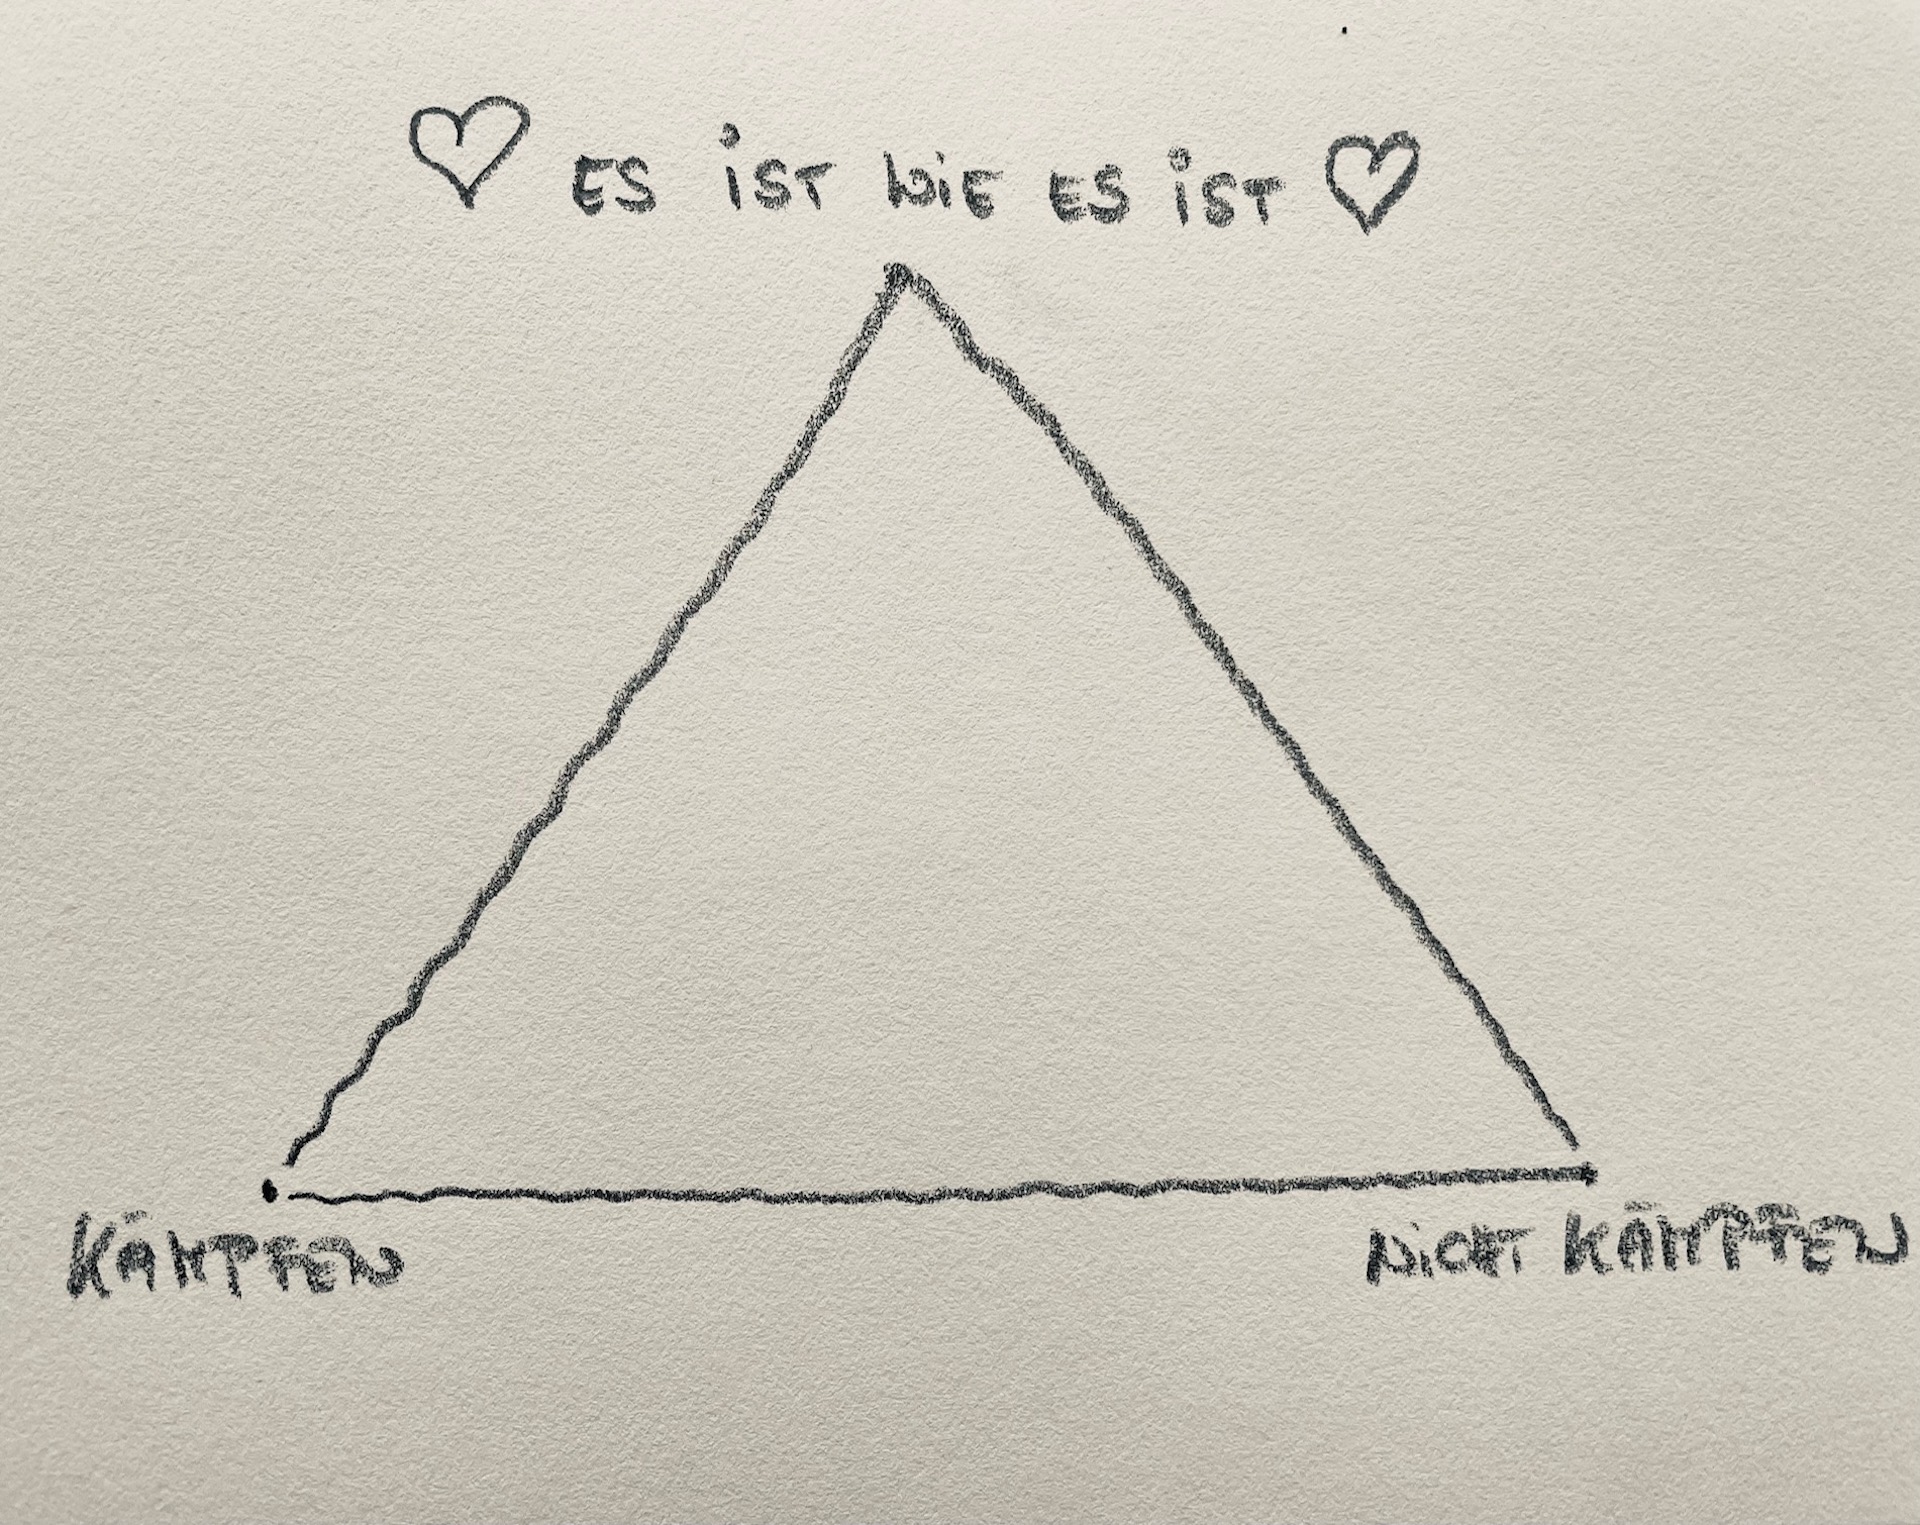 ES IST WIE ES IST
KÄMPFEN
NICHT KÄMPFEN